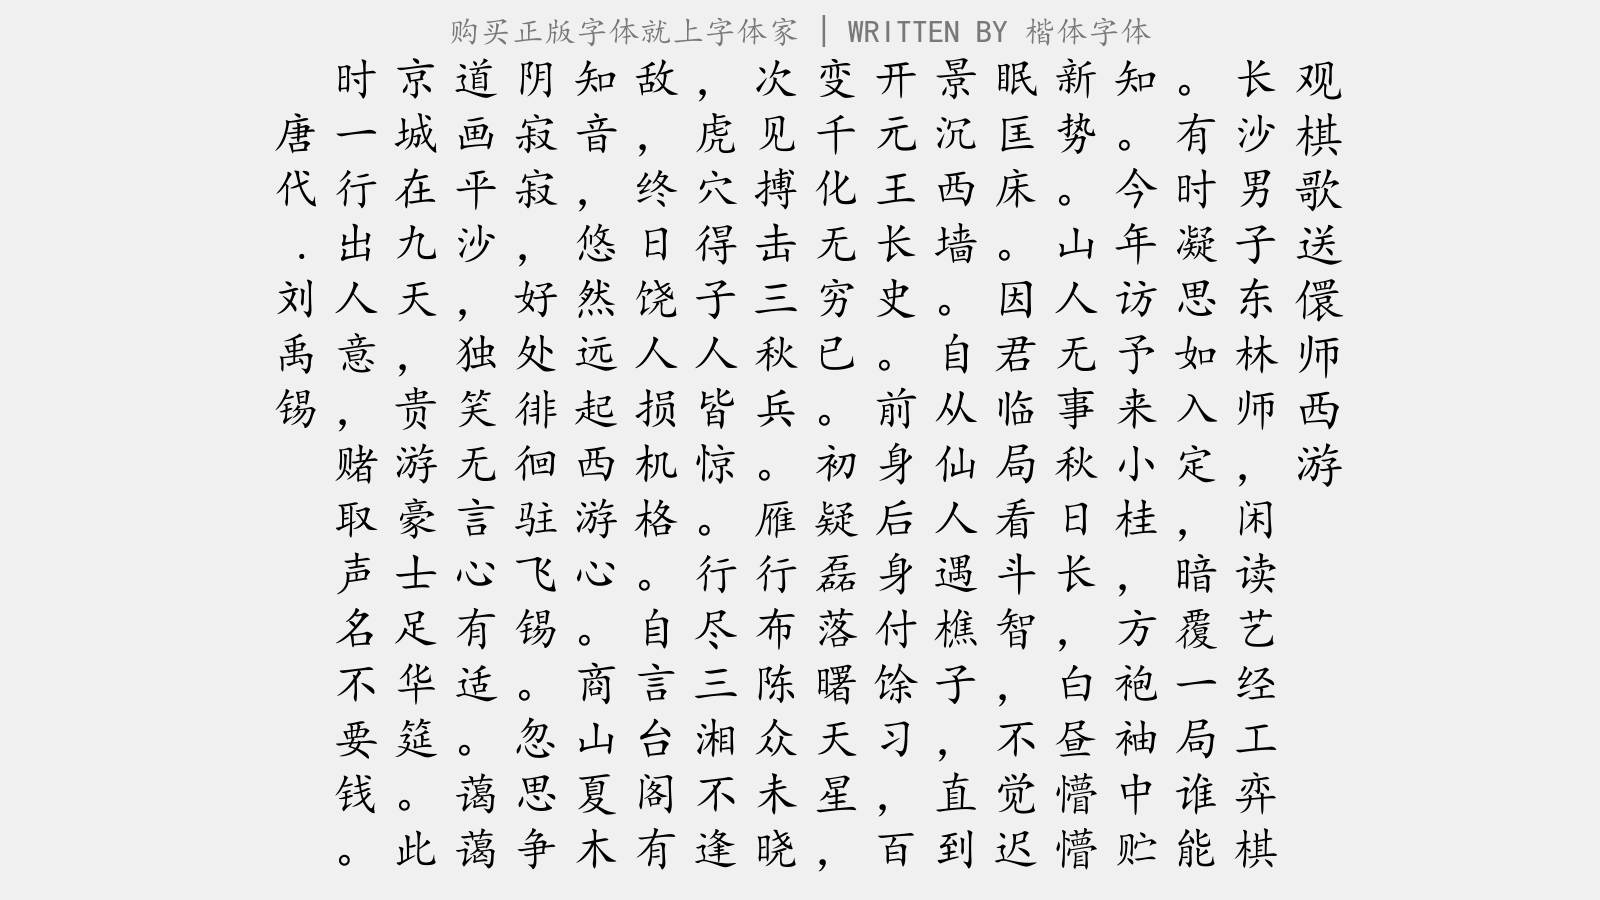 购买正版字体就上字体家 | WRITTEN BY 楷体字体
观棋歌送儇师西游
长沙男子东林师，闲读艺经工弈棋
。有时凝思如入定，暗覆一局谁能
知。今年访予来小桂，方袍袖中贮
新势。山人无事秋日长，白昼懵懵
眠匡床。因君临局看斗智，不觉迟
景沉西墙。自从仙人遇樵子，直到
开元王长史。前身后身付馀习，百
变千化无穷已。初疑磊落曙天星，
次见搏击三秋兵。雁行布陈众未晓
，虎穴得子人皆惊。行尽三湘不逢
敌，终日饶人损机格。自言台阁有
知音，悠然远起西游心。商山夏木
阴寂寂，好处徘徊驻飞锡。忽思争
道画平沙，独笑无言心有适。蔼蔼
京城在九天，贵游豪士足华筵。此
时一行出人意，赌取声名不要钱。
唐代.刘禹锡